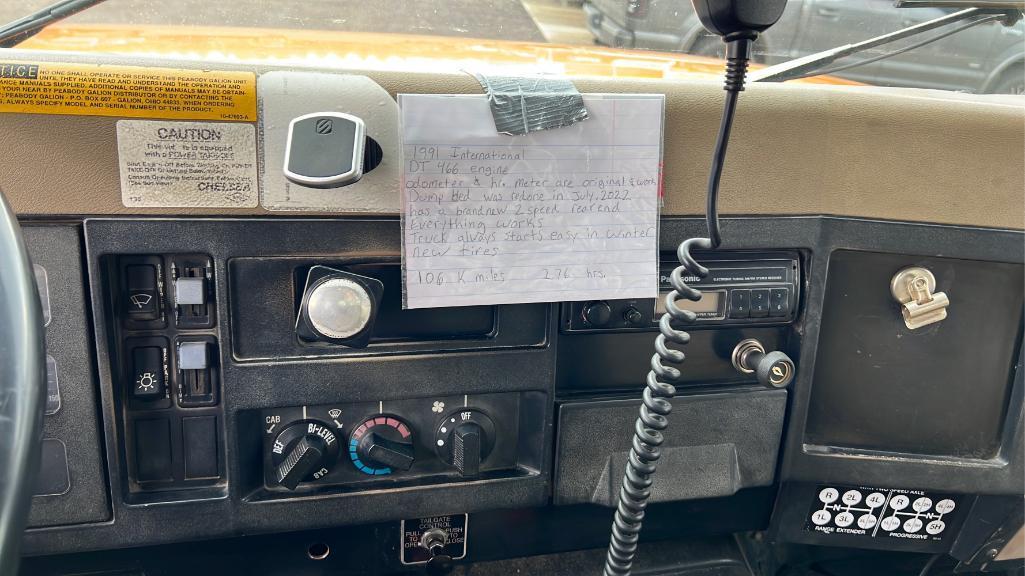 NOTICE NO ONE SHALL OPERATE OR SERVICE THIS PEABODY GALION UNIT
UNTIL THEY HAVE READ AND UNDERSTAND THE OPERATION
MANUALS SUPPLIED. ADDITIONAL COPIES OF MANUALS MAY BE OBTAIN-
YOUR NEAR BY PEABODY GALION DISTRIBUTOR OR BY CONTACTING THE
PEABODY GALION - P.O. BOX 607 - GALION, OHIO 44833. WHEN ORDERING
ALWAYS SPECIFY MODEL AND SERIAL NUMBER OF THE PRODUCT.
CAUTION
is equipped
with a POWER TAKE-OFF
CHELSEA
1991 International
DT 466 engine
odometer & hr. meter are original & work
Dump bed was redone in July, 2022
has a brand new 2 speed rear end
Everything works
Truck always starts easy in winter
new tires
106 K miles 276 hrs.
Panasonic
CAB
DEF
BI-LEVEL
CAB
OFF
TAILGATE
CONTROL
PULL TO OPEN
PUSH TO CLOSE
TWO SPEED AXLE
R 2L 4L
N
1L 3L
RANGE EXTENDER
R
N
5H
PROGRESSIVE